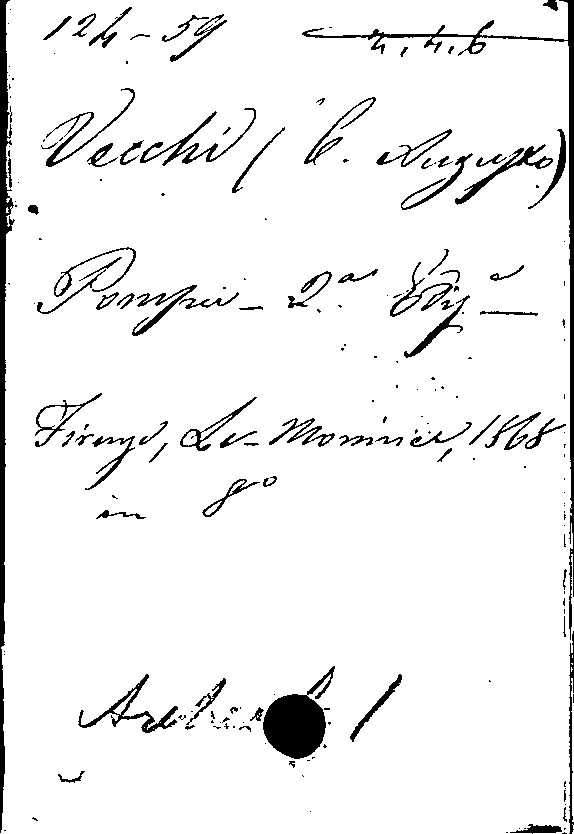 124-59 4.4.6
Vecchi (C. Augusto)
Pompei - 2.a Ediz.a -
Firenze, Le-Monnier, 1868
in 8°